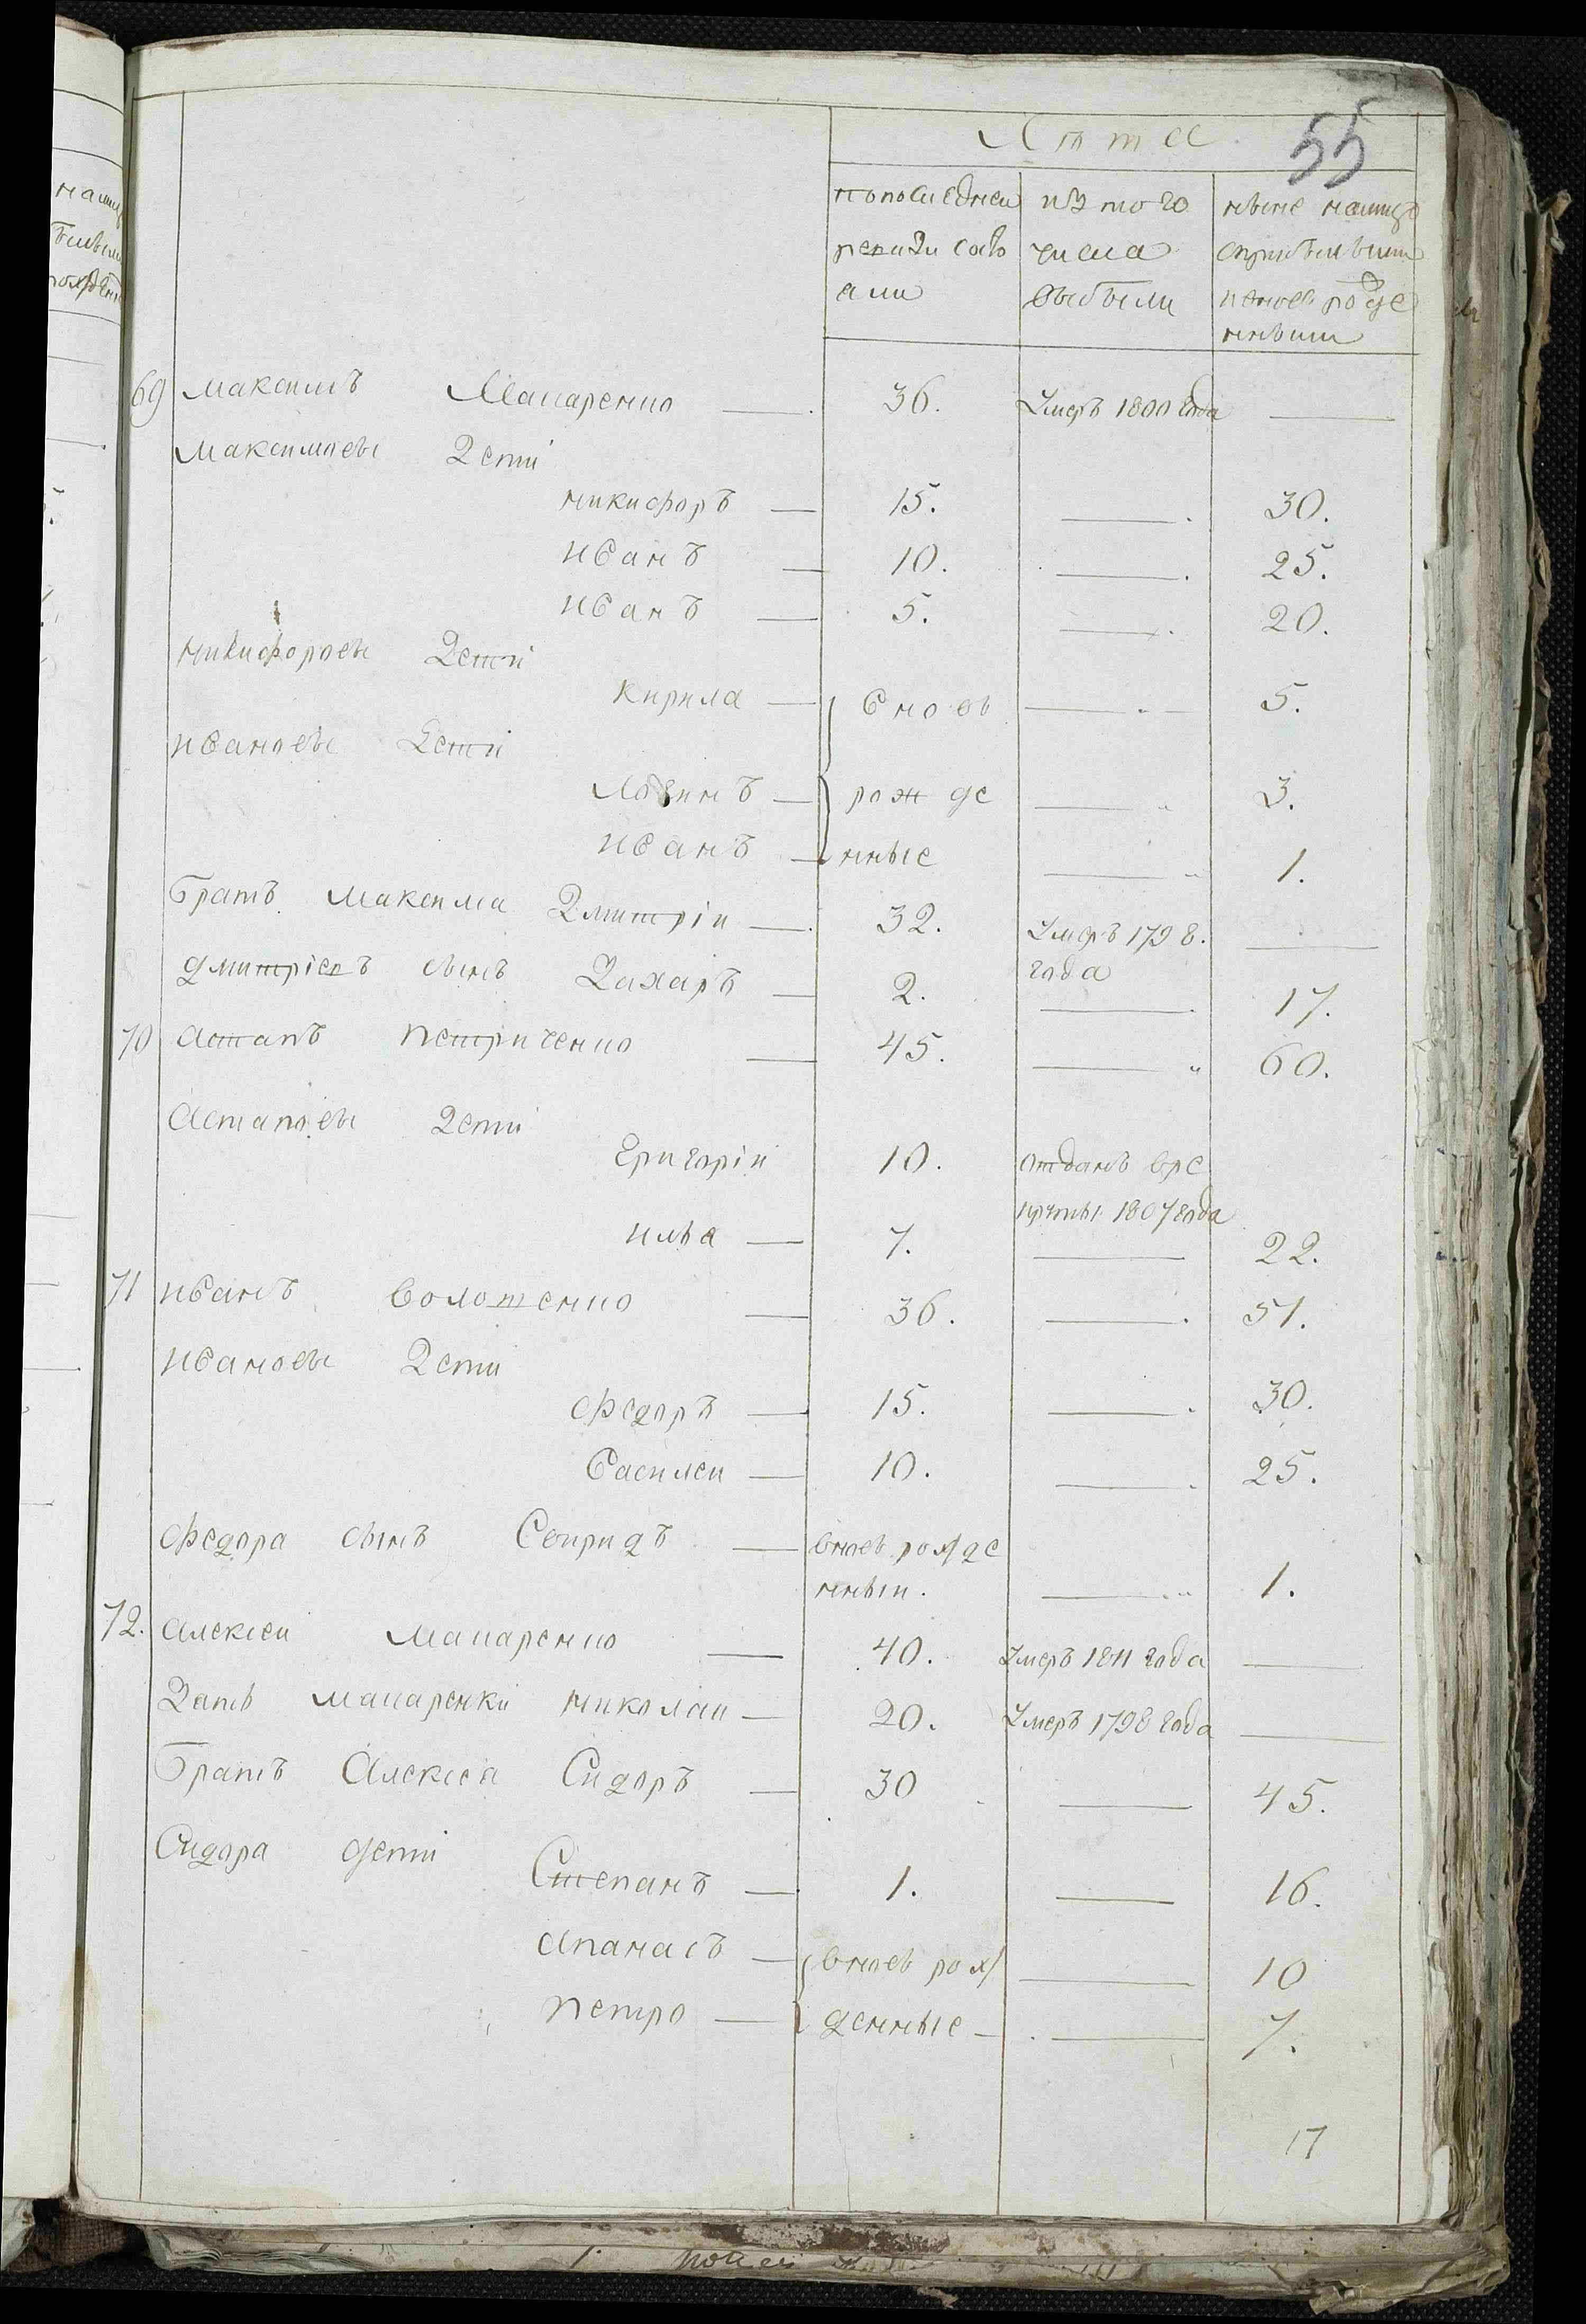 Лѣта 55
попоследнеи ревизи состояли
изтого числа выбыли
ныне налицо сприбылыми ивновь рожденными
69 максимъ Макаренко — 36. Умеръ 1800 года —
Максимовы дети
никифоръ — 15. — 30.
иванъ — 10. — 25.
иванъ — 5. — 20.
никифоровы дети
кирила — вновь — 5.
ивановы дети
логинъ — рожде — 3.
иванъ — нные — 1.
братъ максима Дмитріи — 32. Умеръ 1798. года —
дмитріевъ сынъ Захаръ — 2. — 17.
70 Астапъ петриченко — 45. — 60.
Астаповы дети
григоріи 10. отданъ вре
круты 1807 года
илья — 7. — 22.
71 иванъ волошенко — 36. — 51.
ивановы дети
федоръ — 15. — 30.
василеи — 10. — 25.
федора сынъ Свиридъ — вновь рожде
нныи. — 1.
72. алексеи макаренко — 40. Умеръ 1811 года —
зять макаренки николаи — 20. Умеръ 1798 года —
братъ Алексея Сидоръ — 30 — 45.
Сидора дети
Степанъ — 1. — 16.
апанасъ — вновь рож — 10
петро — денные — 7.
17